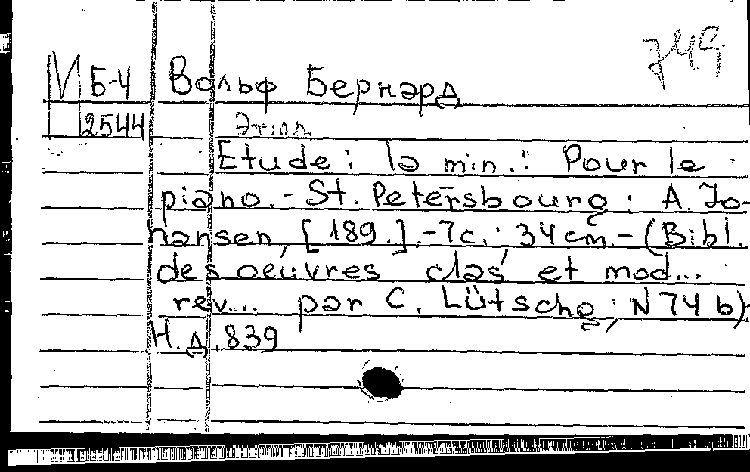 749
М Б-4 Вольф Бернард
2544 Этюд
Etude : la min. : Pour le
piano. - St. Petersbourg : A. Jo-
hansen, [189.]. - 7c. ; 34 cm. - (Bibl.
des oeuvres clas. et mod...
rev... par C. Lütschg ; N 74 b).
Н.Д. 839